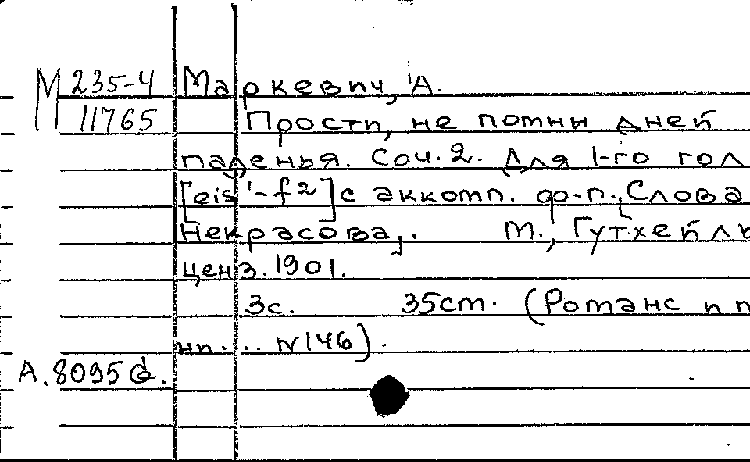 М 235-4 Маркевич, А.
11765 Прости, не помни дней
паденья. Соч. 2. Для 1-го гол
[eis'-f2] с аккомп. ф-п., Слова
Некрасова,. М., Гутхейль
ценз. 1901.
3с. 35см. (Романс
№146).
А. 8095